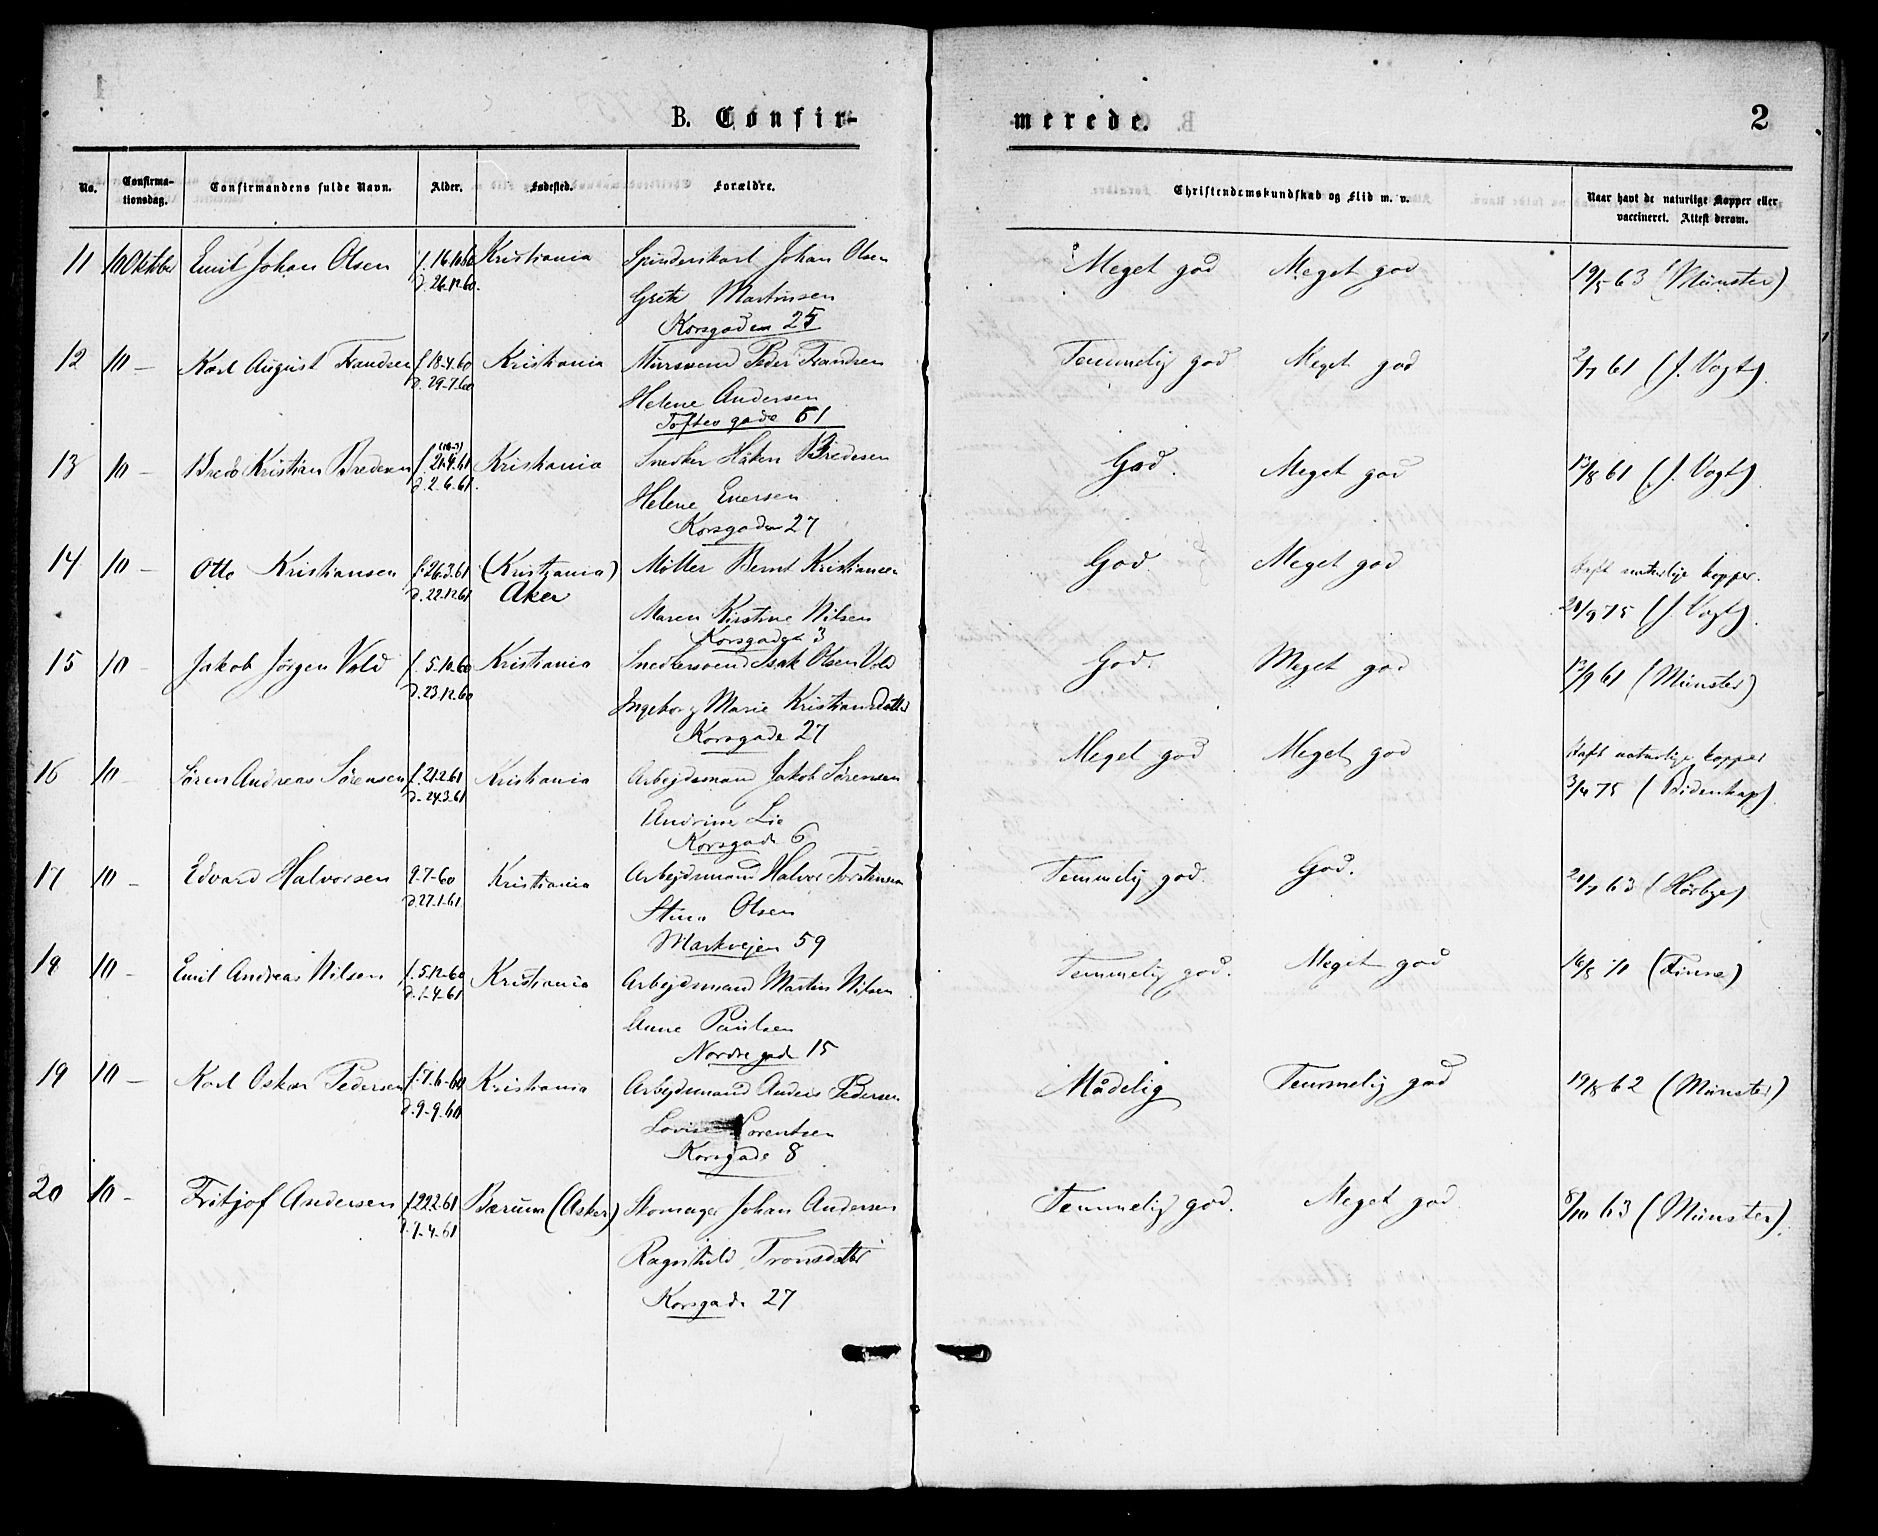 B. Confirmerede. 2
No. Confirmationsdag. Confirmandens fulde Navn. Alder. Fødested. Forældre. Christendomskundskab og Flid m. v. Naar havt de naturlige Kopper eller vaccineret. Attest derom.
11 10 Oktober Emil Johan Olsen f. 16.10.60 Kristiania Johan Olsen Meget god Meget god 19/5 63 (Münster)
d. 26.12.60. Grete Martinsen
Korsgaden 25
12 10 — Karl August Frandsen f. 18-4.60 Kristiania Murersvend Peder Frandsen Temmelig god Meget god 2/7 61 (J. Vogt)
d. 29-7.60 Helene Andersen
Toftes gade 51
13 10 — Bredo Kristian Bredesen f. 21.4.61 Kristiania Snedker Håken Bredesen God. Meget god 13/8 61 (J. Vogt)
d. 2.6.61. Helene Evensen
Korsgaden 27
14 10 — Otto Kristiansen f. 26.3.61 (Kristiania) Møller Bernt Kristiansen God. Meget god Haft naturlige kopper.
d. 22.12.61 Aker Maren Kirstine Nilsen 21/9 75 (J. Vogt)
Korsgaden 3
15 10 — Jakob Jørgen Vold f. 5.10.60 Kristiania Snedkersvend Isak Olsen Vold God. Meget god 13/9 61 (Münster)
d. 23.12.60 Ingeborg Marie Kristiansdatter
Korsgade 27
16 10 — Søren Andreas Sørensen f. 21.2.61 Kristiania Arbejdsmand Jakob Sørensen Meget god Meget god Haft naturlige kopper
d. 24.3.61 Andrine Lie 75 (Bidenkap)
Korsgade 6
17 10 — Edvard Halvorsen 9-7-60 Kristiania Arbejdsmand Halvor Torstensen Temmelig god. God. 21/7 63 (Hørbye)
d. 27.1.61 Stina Olsen
Markvejen 59
19 10 — Emil Andreas Nilsen f. 5.12-60 Kristiania Arbejdsmand Martin Nilsen Temmelig god. Meget god 16/8 70 (Finne)
d. 1-4.61 Anne Paulsen
Nordregade 15
19 10 — Karl Oskar Pedersen f. 7.6-60 Kristiania Arbejdsmand Anders Pedersen Mådelig Temmelig god 19/8 62 (Münster)
d. 9-9.60 Lovise Lorentsen
Korsgade 8
20 10 — Fritjof Andersen f. 22.2.61 Bærum (Asker) Skomager Johan Andersen Temmelig god. Meget god 8/10 63 (Münster).
d. 7-4.61 Ragnhild Tronsdatter
Korsgade 27